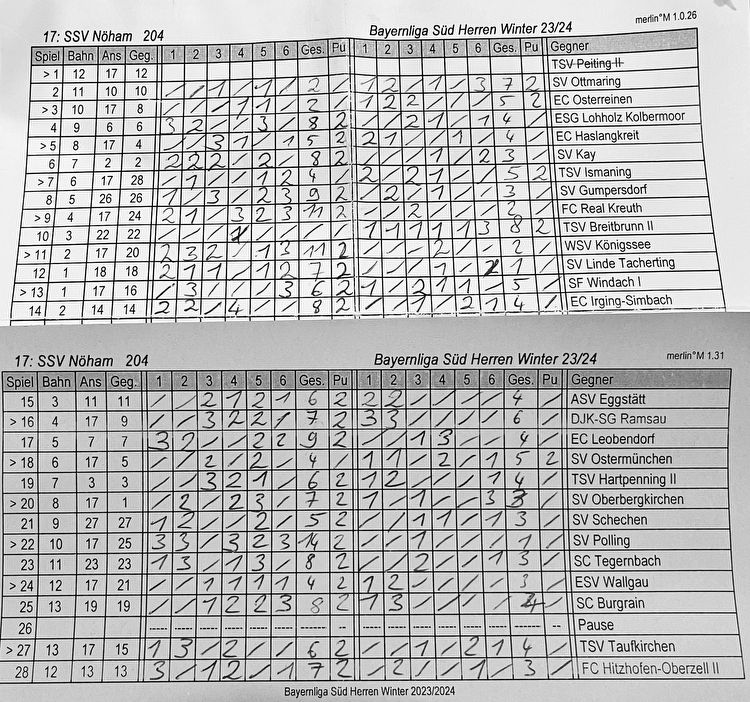 17: SSV Nöham 204 Bayernliga Süd Herren Winter 23/24 merlin°M 1.0.26
Spiel Bahn Ans Geg. 1 2 3 4 5 6 Ges. Pu 1 2 3 4 5 6 Ges. Pu Gegner
> 1 12 17 12 TSV Peiting II
2 11 10 10 / / 1 / 1 / 2 / 1 2 / 1 / 3 7 2 SV Ottmaring
> 3 10 17 8 / / / 1 1 / 2 / 1 2 2 / / / 5 2 EC Osterreinen
4 9 6 6 3 2 / / 3 / 8 2 / / 2 1 / 1 4 / ESG Lohholz Kolbermoor
> 5 8 17 4 / / 3 1 / 1 5 2 2 1 / / 1 / 4 / EC Haslangkreit
6 7 2 2 2 2 2 / 2 / 8 2 / / / 1 / 2 3 / SV Kay
> 7 6 17 28 / 1 / / 1 2 4 / 2 / 2 1 / / 5 2 TSV Ismaning
8 5 26 26 1 / 3 / 2 3 9 2 / 2 / 1 / / 3 / SV Gumpersdorf
> 9 4 17 24 2 1 / 3 2 3 11 2 / / 2 / / / 2 / FC Real Kreuth
10 3 22 22 / / / / / / / 1 1 1 1 1 3 8 2 TSV Breitbrunn II
> 11 2 17 20 2 3 2 / 1 3 11 2 / / / 2 / / 2 / WSV Königssee
12 1 18 18 2 1 1 / 1 2 7 2 / / / / 1 / 1 / SV Linde Tacherting
> 13 1 17 16 / 3 / / / 3 6 2 1 / 2 1 1 / 5 / SF Windach I
14 2 14 14 2 2 / 4 / / 8 2 / 1 / / 2 1 4 / EC Irging-Simbach
17: SSV Nöham 204 Bayernliga Süd Herren Winter 23/24 merlin°M 1.31
Spiel Bahn Ans Geg. 1 2 3 4 5 6 Ges. Pu 1 2 3 4 5 6 Ges. Pu Gegner
15 3 11 11 / / 2 1 2 1 6 2 2 2 / / / / 4 / ASV Eggstätt
> 16 4 17 9 / / 3 2 2 / 7 2 3 3 / / / / 6 / DJK-SG Ramsau
17 5 7 7 3 2 / / 2 2 9 2 / / 1 3 / / 4 / EC Leobendorf
> 18 6 17 5 / / 2 / 2 / 4 / 1 1 / 2 / 1 5 2 SV Ostermünchen
19 7 3 3 / / 3 2 1 / 6 2 1 2 / / / 1 4 / TSV Hartpenning II
> 20 8 17 1 / 2 / 2 3 / 7 2 1 / 1 / / 3 3 / SV Oberbergkirchen
21 9 27 27 1 2 / / 2 / 5 2 / / 1 1 / 1 3 / SV Schechen
> 22 10 17 25 3 3 / 3 2 3 14 2 / / 1 / / / 1 / SV Polling
23 11 23 23 1 3 / 1 3 / 8 2 / / 2 / / 1 3 / SC Tegernbach
> 24 12 17 21 / / 1 1 1 1 4 2 1 2 / / / / 3 / ESV Wallgau
25 13 19 19 / / 1 2 2 3 8 2 1 3 / / / / 4 / SC Burgrain
26 ----- ----- ----- ----- ----- ----- ----- -- ----- ----- ----- ----- ----- ----- ----- -- Pause
> 27 13 17 15 1 3 / 2 / / 6 2 / / 1 / 2 1 4 / TSV Taufkirchen
28 12 13 13 3 / 1 2 / 1 7 2 / 2 / / 1 / 3 / FC Hitzhofen-Oberzell II
Bayernliga Süd Herren Winter 2023/2024